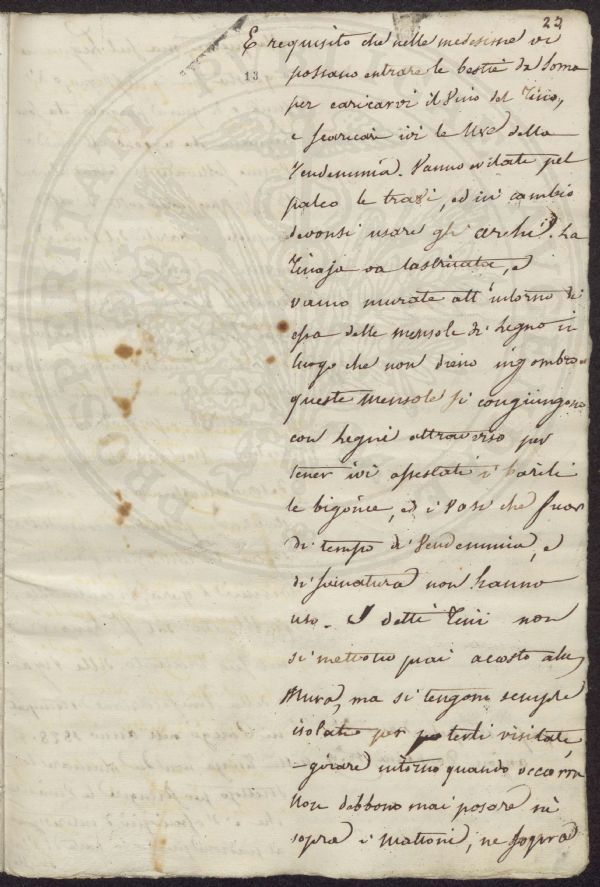 22
13
E requisito che nelle medesime vi
possano entrare le bestie da Soma
per caricarvi il Vino del Tino,
e scaricar ivi le Uve della
Vendemmia. Vanno evitate pel
palco le travi, ed in cambio
devonsi usare gli archi. La
Tinaja va lastricata, e
vanno murate all'intorno di
essa delle mensole di Legno in
luogo che non dieno ingombro
queste Mensole si congiungono
con Legni attraverso per
tener ivi assestati i barili
le bigonie, ed i Vasi che fuor
di tempo di Vendemmia, e
di svinatura non hanno
uso. I detti Tini non
si mettono mai acosto alle
Mura, ma si tengono sempre
isolati per poterli visitare,
girare intorno quando occorra
Non debbono mai posare ne
sopra i Mattoni, ne sopra
PROSPERITATI PUBLICAE